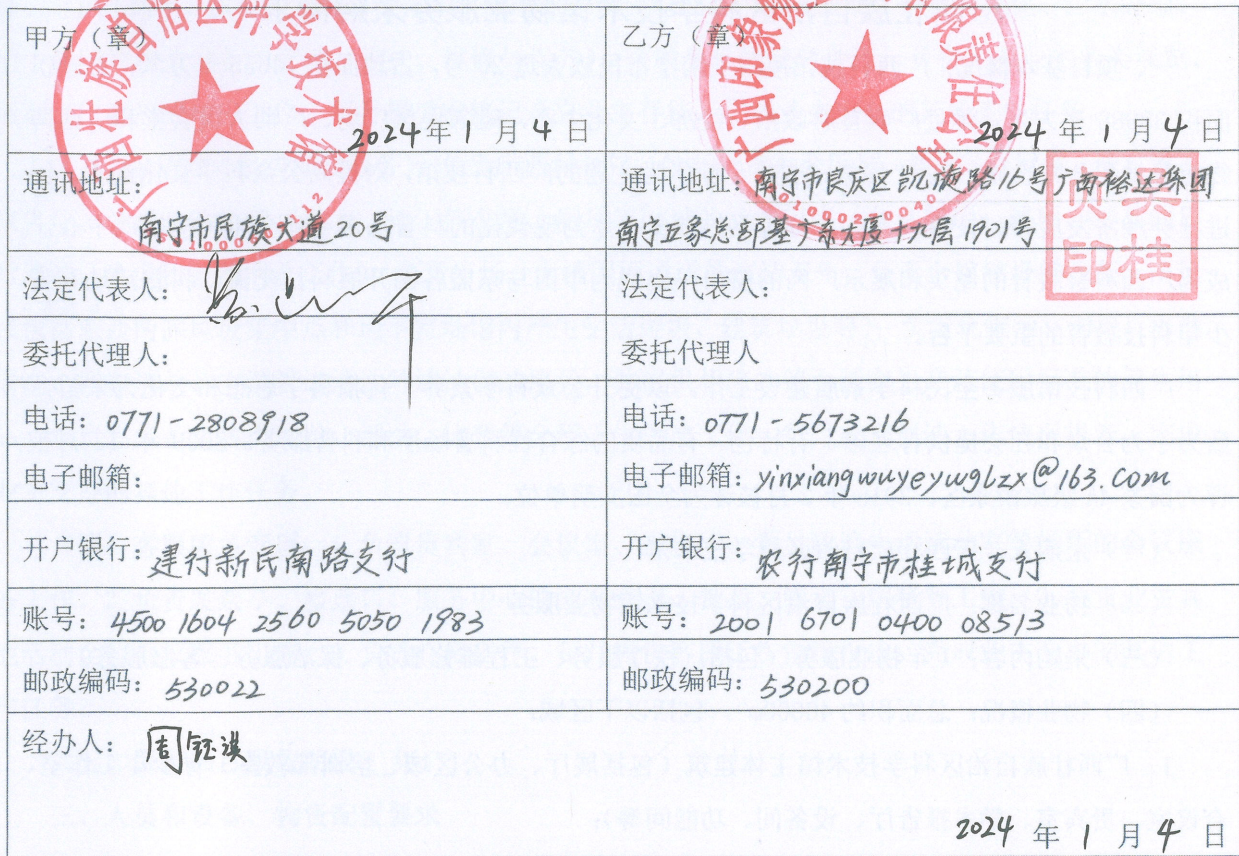 甲方（章）
广西壮族自治区科学技术馆
2024年1月4日
乙方（章）
2024年1月4日
通讯地址：
南宁市民族大道20号
通讯地址：南宁市良庆区凯旋路16号广西裕达集团
南宁五象总部基地大厦十九层1901号
吴桂
贞印
法定代表人：
法定代表人：
委托代理人：
委托代理人
电话：0771-2808918
电话：0771-5673216
电子邮箱：
电子邮箱：yinxiangwuyeywglzx@163.com
开户银行：建行新民南路支行
开户银行：农行南宁市桂城支行
账号：4500 1604 2560 5050 1983
账号：2001 6701 0400 08513
邮政编码：530022
邮政编码：530200
经办人：周钰淇
2024年1月4日